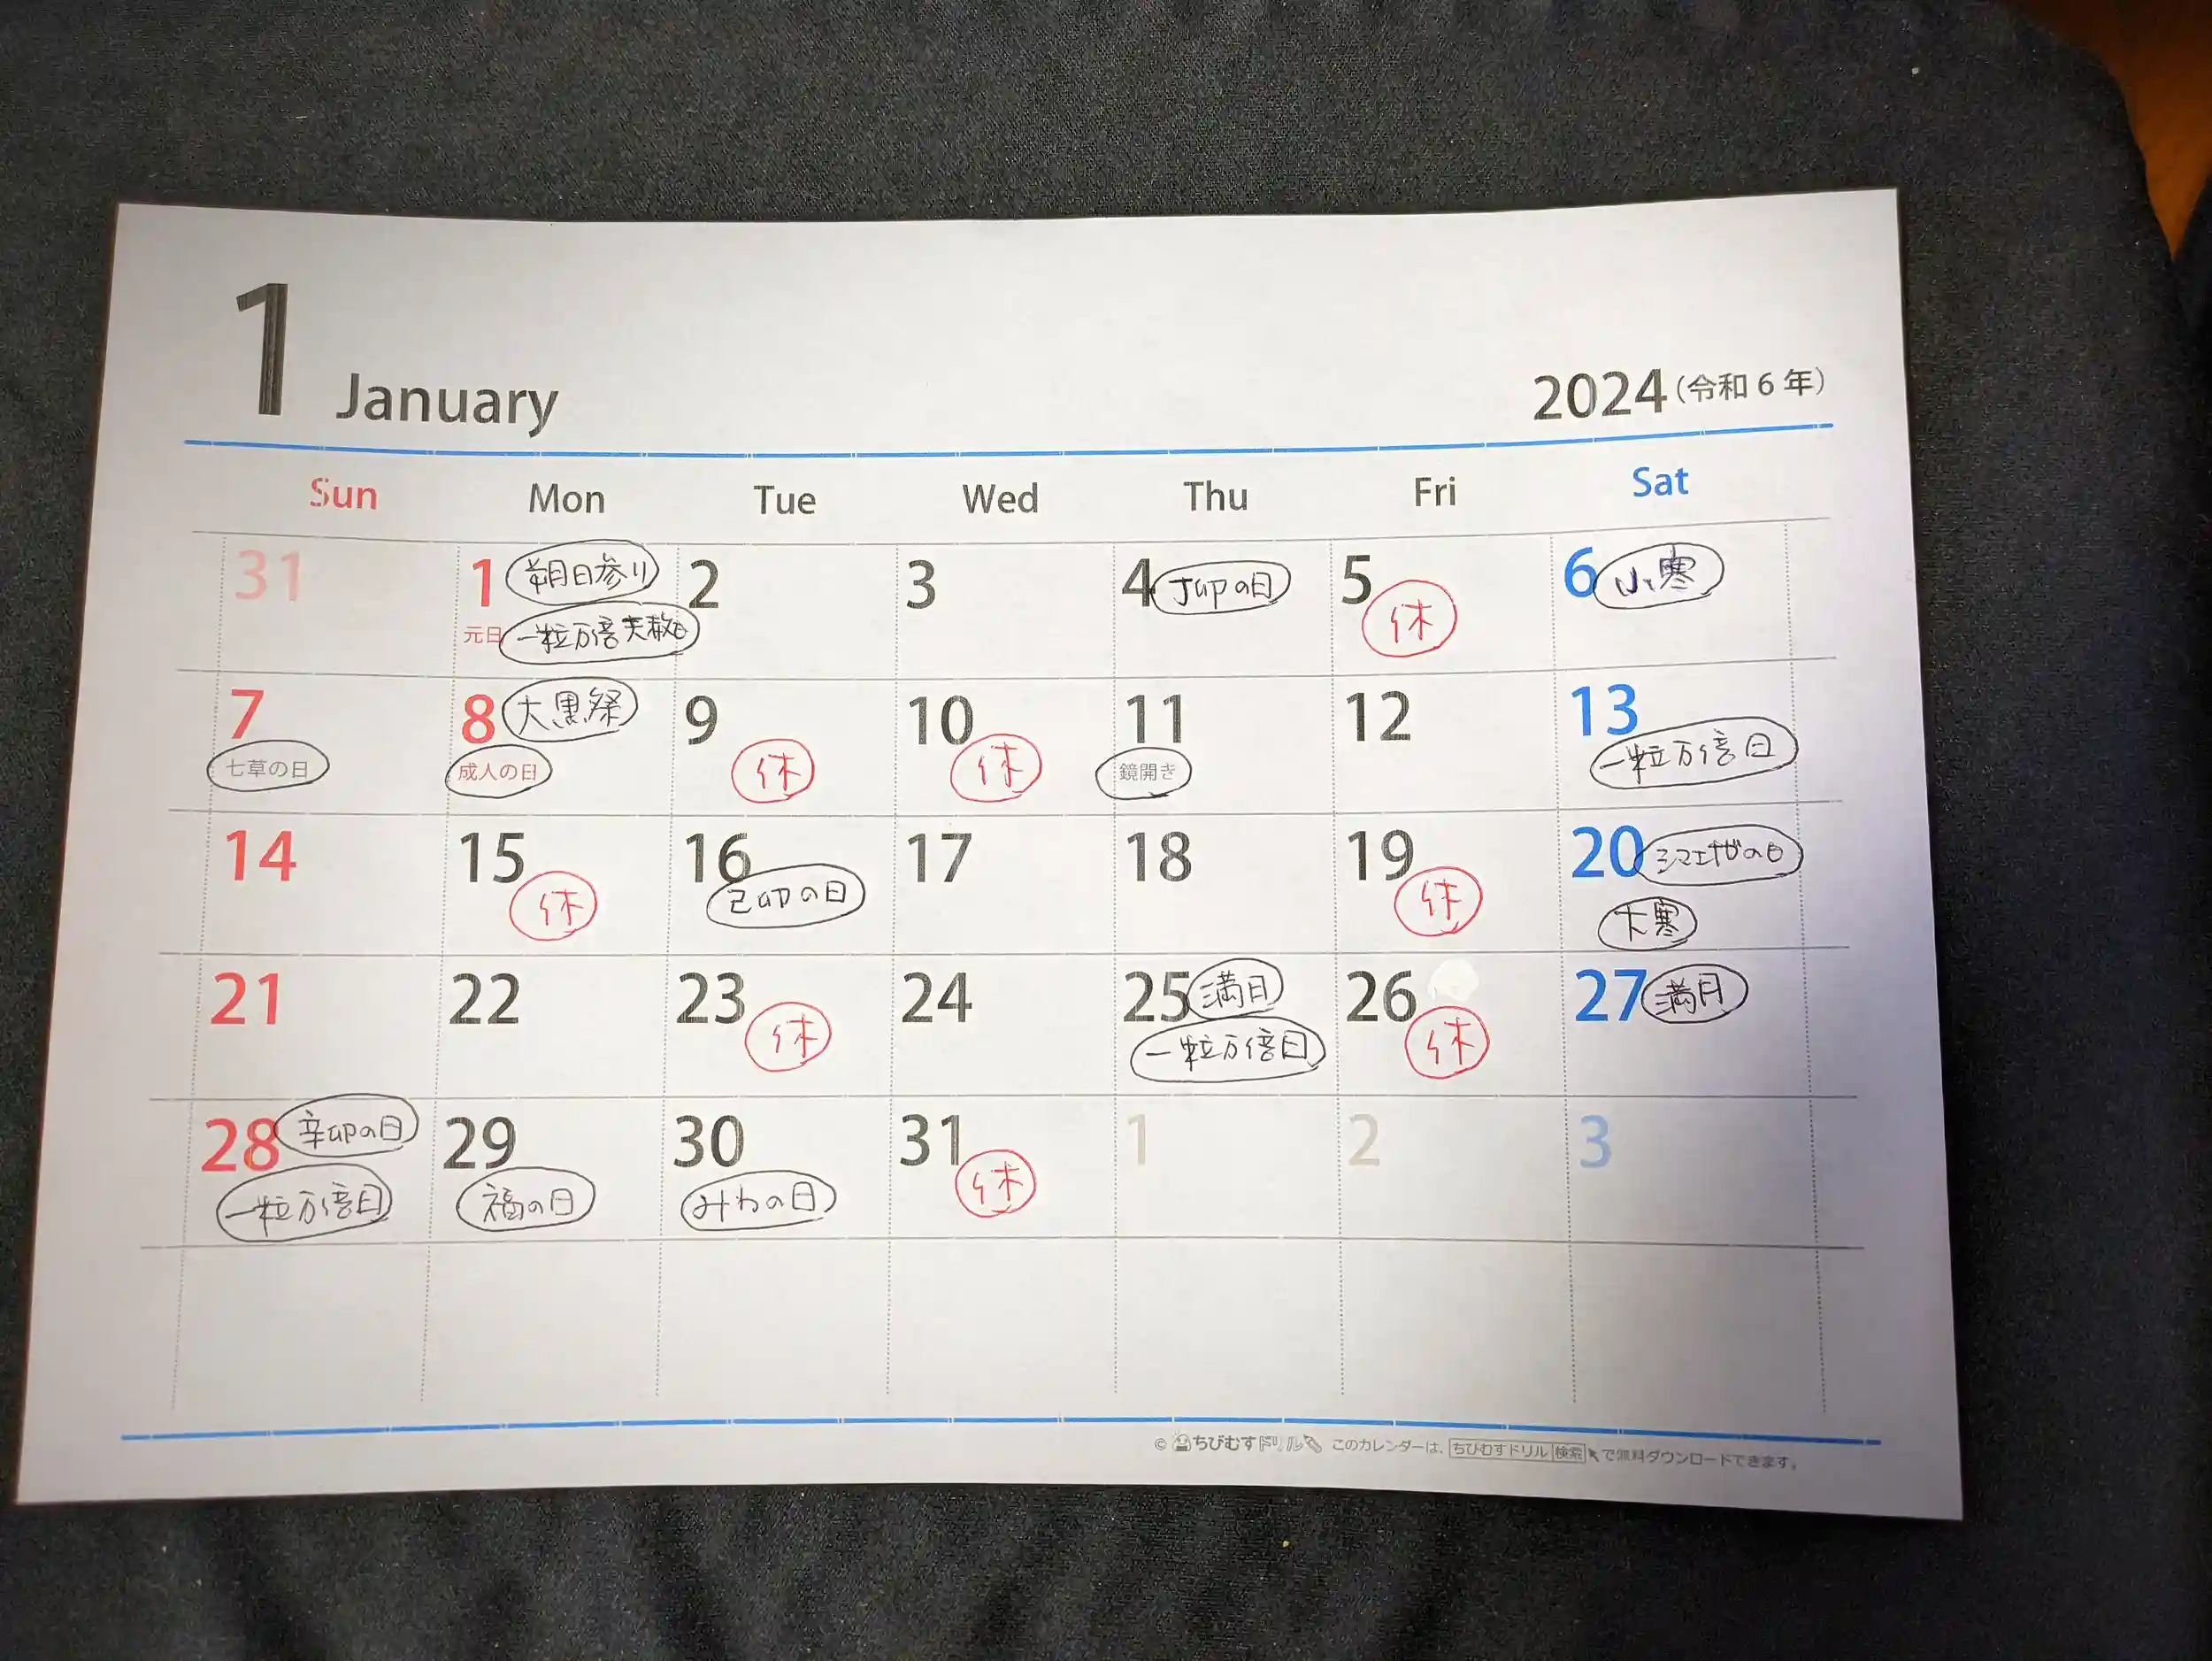 1 January
2024(令和6年)
Sun Mon Tue Wed Thu Fri Sat
31 1 朔日参り 2 3 4 丁卯の日 5 6 小寒
元日 一粒万倍天赦日 休
7 8 大黒祭 9 10 11 12 13
七草の日 成人の日 休 休 鏡開き 一粒万倍日
14 15 16 17 18 19 20 シマエナガの日
休 己卯の日 休 大寒
21 22 23 24 25 満日 26 27 満月
休 一粒万倍日 休
28 辛卯の日 29 30 31 1 2 3
一粒万倍日 福の日 みわの日 休
© ちびむすドリル このカレンダーは、ちびむすドリル 検索 で無料ダウンロードできます。